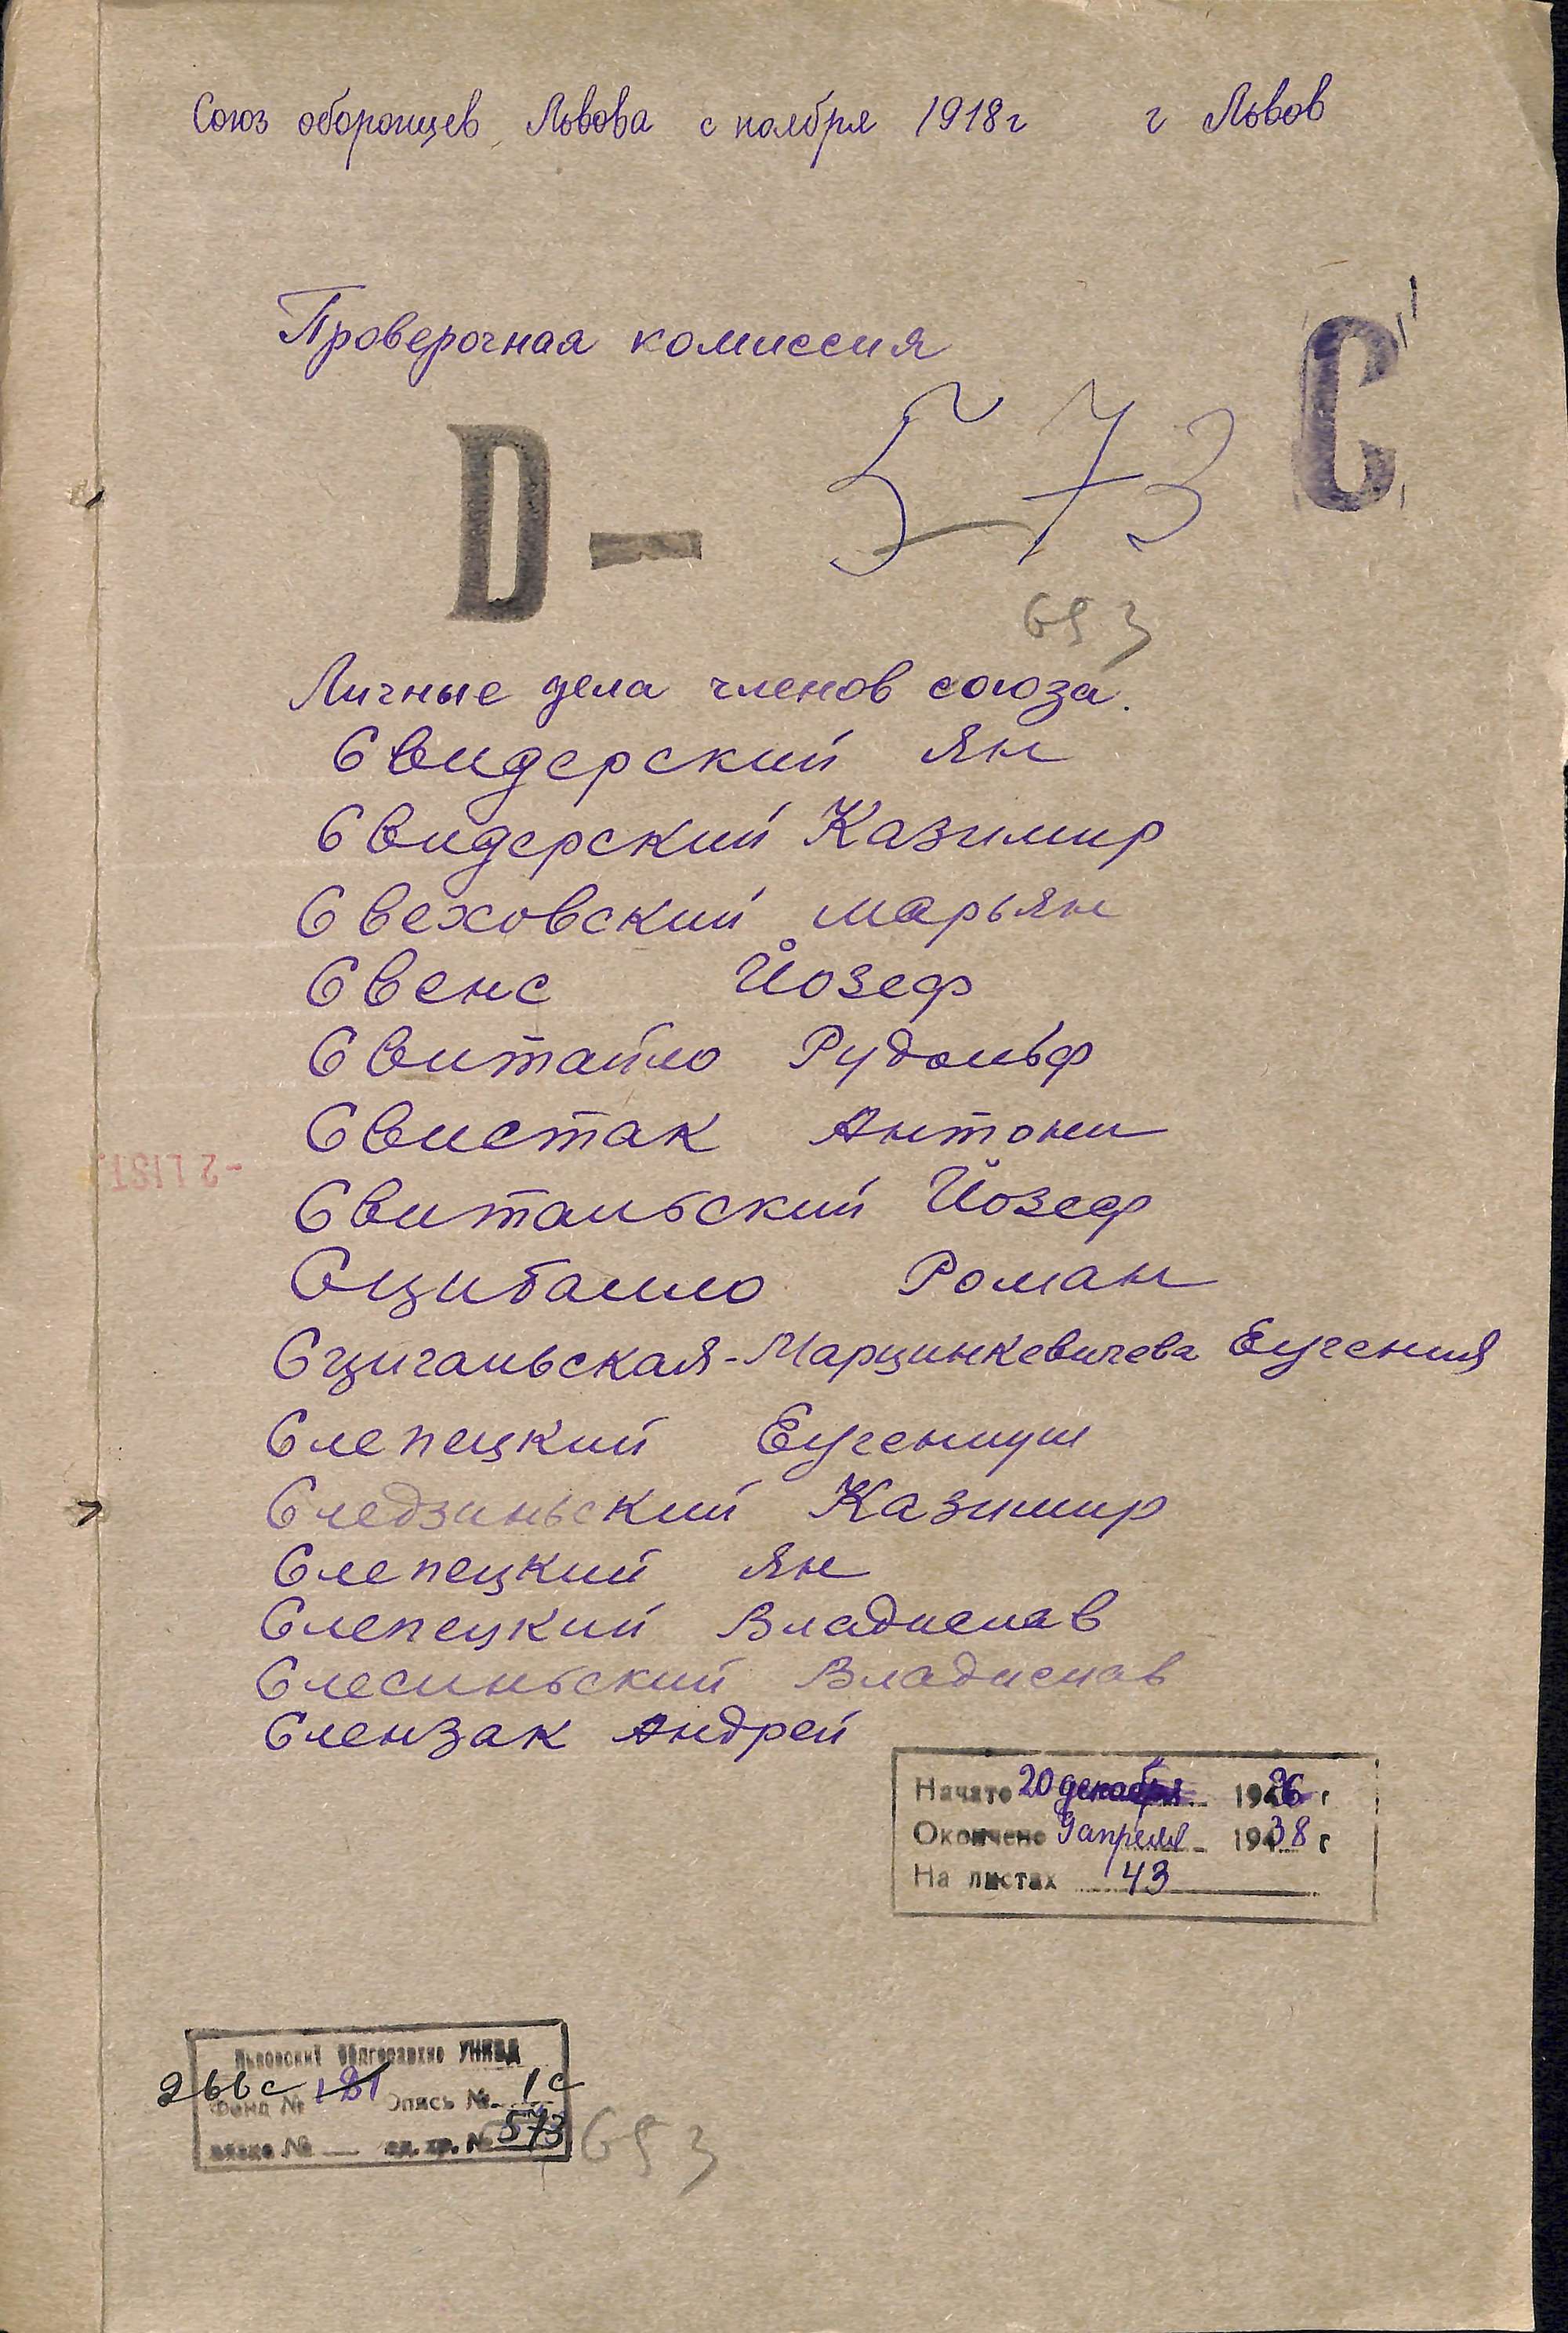 Союз оборонцев Львова с ноября 1918г г Львов
Проверочная комиссия
С
D — 573
653
Личные дела членов союза.
Свидерский Ян
Свидерский Казимир
Свеховский Марьян
Свенс Йозеф
Свитайло Рудольф
Свистак Антони
- 2 LIST.
Свитальский Йозеф
Сцибайло Роман
Сцигальская-Марцинкевичева Еугения
Слепецкий Еугениуш
Следзиньский Казимир
Слепецкий Ян
Слепецкий Владислав
Слесиньский Владислав
Слензак Андрей
Начато 20 декабря 19 г
Окончено 9 апреля 1938 г
На листах 43
Львовский Облгосархив УНКВД
266с Фонд № 121 Опись № 1с
вязка № — ед. хр. № 573 653